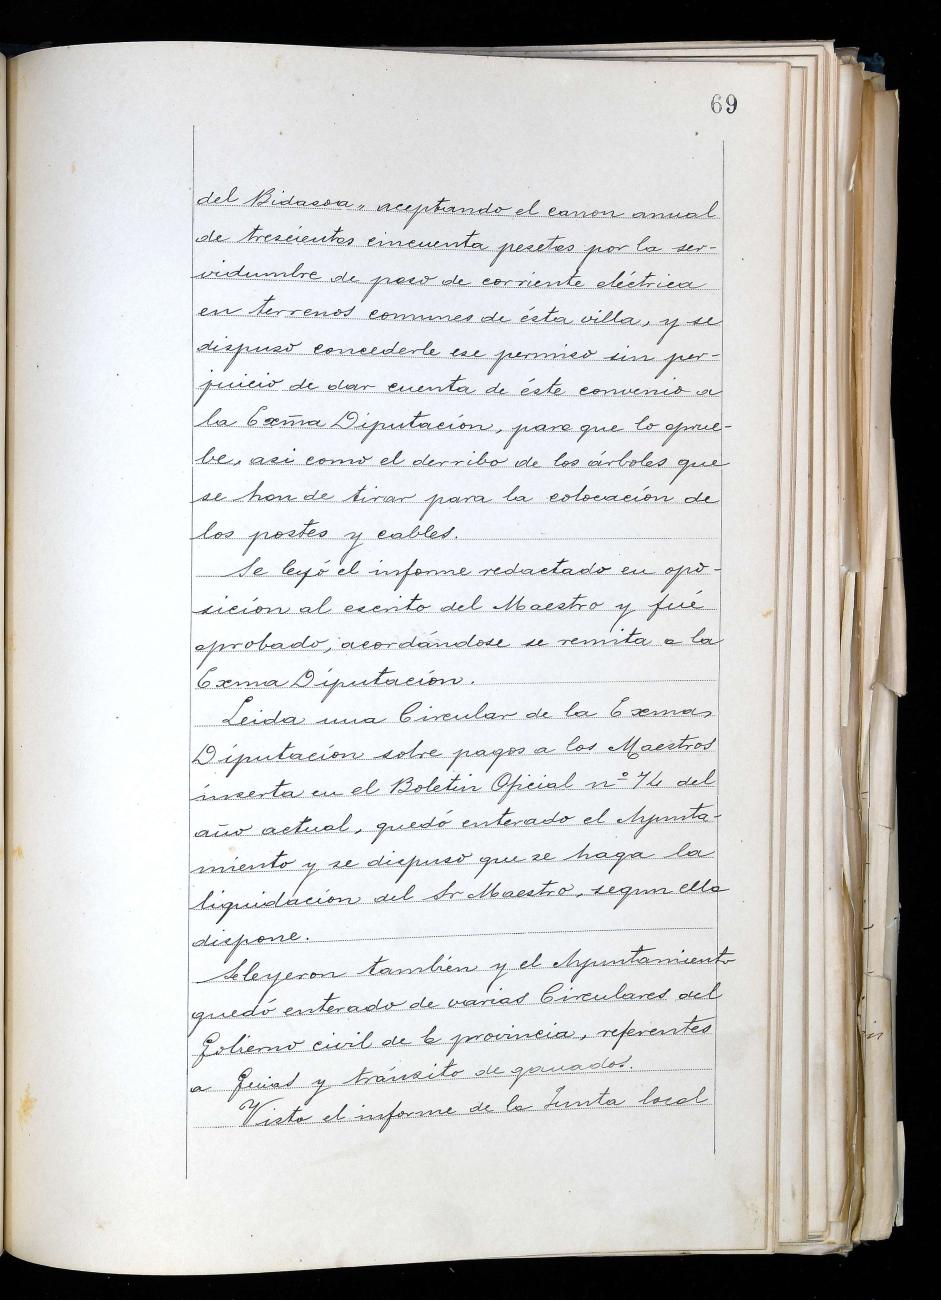 69
del Bidasoa" aceptando el canon anual
de trescientas cincuenta pesetas por la ser-
vidumbre de paso de corriente eléctrica
en terrenos comunes de ésta villa, y se
dispuso concederle ese permiso sin per-
juicio de dar cuenta de éste convenio a
la Exm̃a Diputación, para que lo aprue-
be, asi como el derribo de los árboles que
se han de tirar para la colocación de
los postes y cables.
Se leyó el informe redactado en opo-
sición al escrito del Maestro y fué
aprobado, acordándose se remita a la
Exma Diputación.
Leida una Circular de la Exma
Diputación sobre pagos a los Maestros
inserta en el Boletin Oficial nº 74 del
año actual, quedó enterado el Ayunta-
miento y se dispuso que se haga la
liquidación del Sr Maestro, segun ella
dispone.
Se leyeron también y el Ayuntamiento
quedó enterado de varias Circulares del
Gobierno civil de la provincia, referentes
a Guias y tránsito de ganados.
Visto el informe de la Junta local